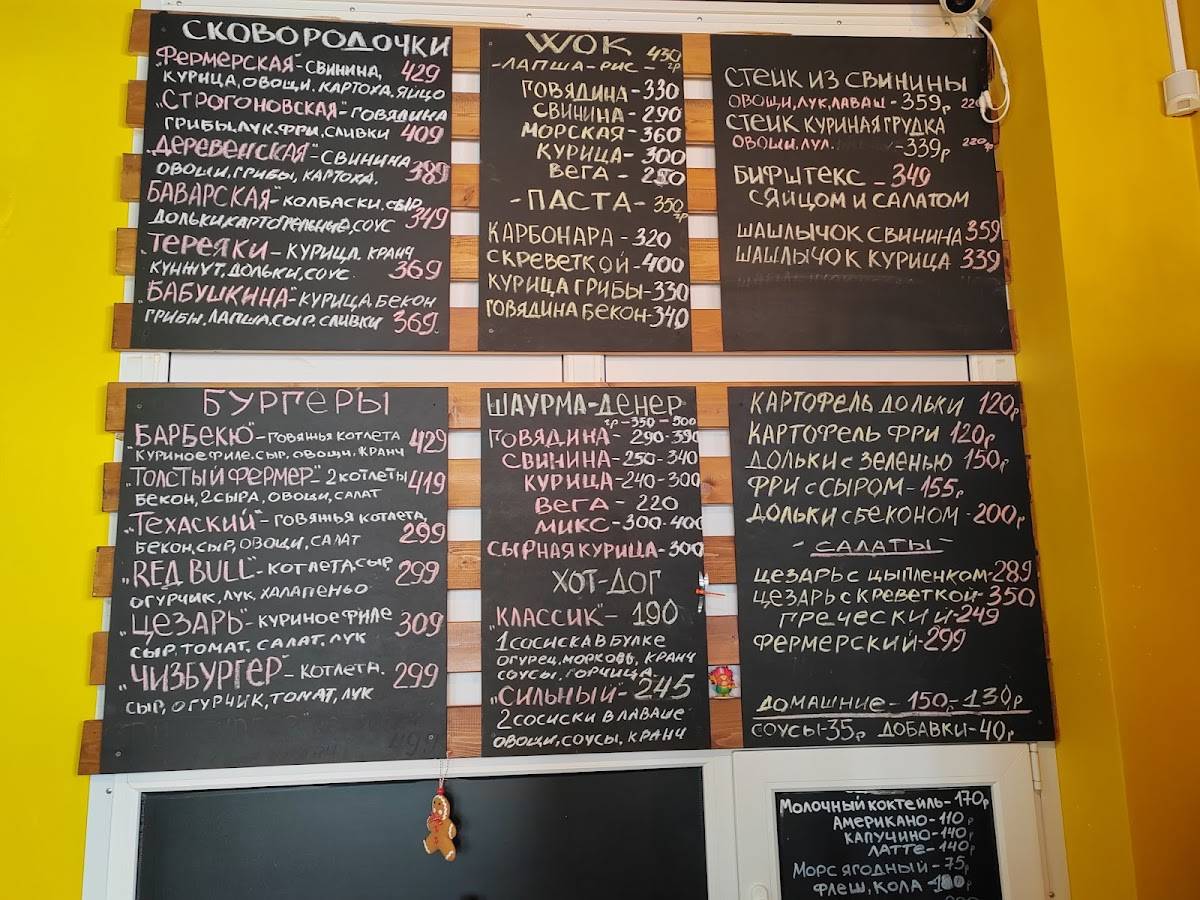 СКОВОРОДОЧКИ
"ФЕРМЕРСКАЯ"-СВИНИНА, 429
КУРИЦА, ОВОЩИ, КАРТОХА, ЯЙЦО
"СТРОГОНОВСКАЯ"-ГОВЯДИНА
ГРИБЫ, ЛУК, ФРИ, СЛИВКИ 409
"ДЕРЕВЕНСКАЯ"-СВИНИНА 389
ОВОЩИ, ГРИБЫ, КАРТОХА.
БАВАРСКАЯ"-КОЛБАСКИ, СЫР,
ДОЛЬКИ КАРТОФЕЛЬНЫЕ, СОУС 349
"ТЕРЕЯКИ-КУРИЦА. КРАНЧ
КУНЖУТ, ДОЛЬКИ, СОУС 369
"БАБУШКИНА"-КУРИЦА, БЕКОН
ГРИБЫ, ЛАПША, СЫР, СЛИВКИ 369
WOK 430 гр
-ЛАПША-РИС-
ГОВЯДИНА-330
СВИНИНА-290
МОРСКАЯ-360
КУРИЦА-300
ВЕГА-250
-ПАСТА-350 гр
КАРБОНАРА-320
С КРЕВЕТКОЙ-400
КУРИЦА ГРИБЫ-330
ГОВЯДИНА БЕКОН-340
СТЕЙК ИЗ СВИНИНЫ
ОВОЩИ, ЛУК, ЛАВАШ-359р
СТЕЙК КУРИНАЯ ГРУДКА
ОВОЩИ, ЛУЛ. -339р 220гр
БИФШТЕКС-349
С ЯЙЦОМ И САЛАТОМ
ШАШЛЫЧОК СВИНИНА 359
ШАШЛЫЧОК КУРИЦА 339
БУРГЕРЫ
"БАРБЕКЮ"-ГОВЯЖЬЯ КОТЛЕТА 429
КУРИНОЕ ФИЛЕ, СЫР, ОВОЩИ, КРАНЧ
"ТОЛСТЫЙ ФЕРМЕР"-2 КОТЛЕТЫ 419
БЕКОН, 2 СЫРА, ОВОЩИ, САЛАТ
"ТЕХАСКИЙ"-ГОВЯЖЬЯ КОТЛЕТА,
БЕКОН, СЫР, ОВОЩИ, САЛАТ 299
"REД BULL"-КОТЛЕТА, СЫР 299
ОГУРЧИК, ЛУК, ХАЛАПЕНЬО
"ЦЕЗАРЬ"-КУРИНОЕ ФИЛЕ 309
СЫР, ТОМАТ, САЛАТ, ЛУК
"ЧИЗБУРГЕР"-КОТЛЕТА. 299
СЫР, ОГУРЧИК, ТОМАТ, ЛУК
ШАУРМА-ДЕНЕР
гр-350-500
ГОВЯДИНА-290-390
СВИНИНА-250-340
КУРИЦА-240-300
ВЕГА-220
МИКС-300-400
СЫРНАЯ КУРИЦА-300
ХОТ-ДОГ
"КЛАССИК"-190
1 СОСИСКА В БУЛКЕ
ОГУРЕЦ, МОРКОВЬ, КРАНЧ
СОУСЫ, ГОРЧИЦА
"СИЛЬНЫЙ-245
2 СОСИСКИ В ЛАВАШЕ
ОВОЩИ, СОУСЫ, КРАНЧ
КАРТОФЕЛЬ ДОЛЬКИ 120р
КАРТОФЕЛЬ ФРИ 120р
ДОЛЬКИ С ЗЕЛЕНЬЮ 150р
ФРИ С СЫРОМ-155р
ДОЛЬКИ С БЕКОНОМ-200р
-САЛАТЫ-
ЦЕЗАРЬ С ЦЫПЛЕНКОМ-289
ЦЕЗАРЬ С КРЕВЕТКОЙ-350
ГРЕЧЕСКИЙ-249
ФЕРМЕРСКИЙ-299
ДОМАШНИЕ-150-130р
СОУСЫ-35р ДОБАВКИ-40р
МОЛОЧНЫЙ КОКТЕЙЛЬ-170р
АМЕРИКАНО-110р
КАПУЧИНО-140р
ЛАТТЕ-140р
МОРС ЯГОДНЫЙ-75р
ФЛЕШ, КОЛА-100р